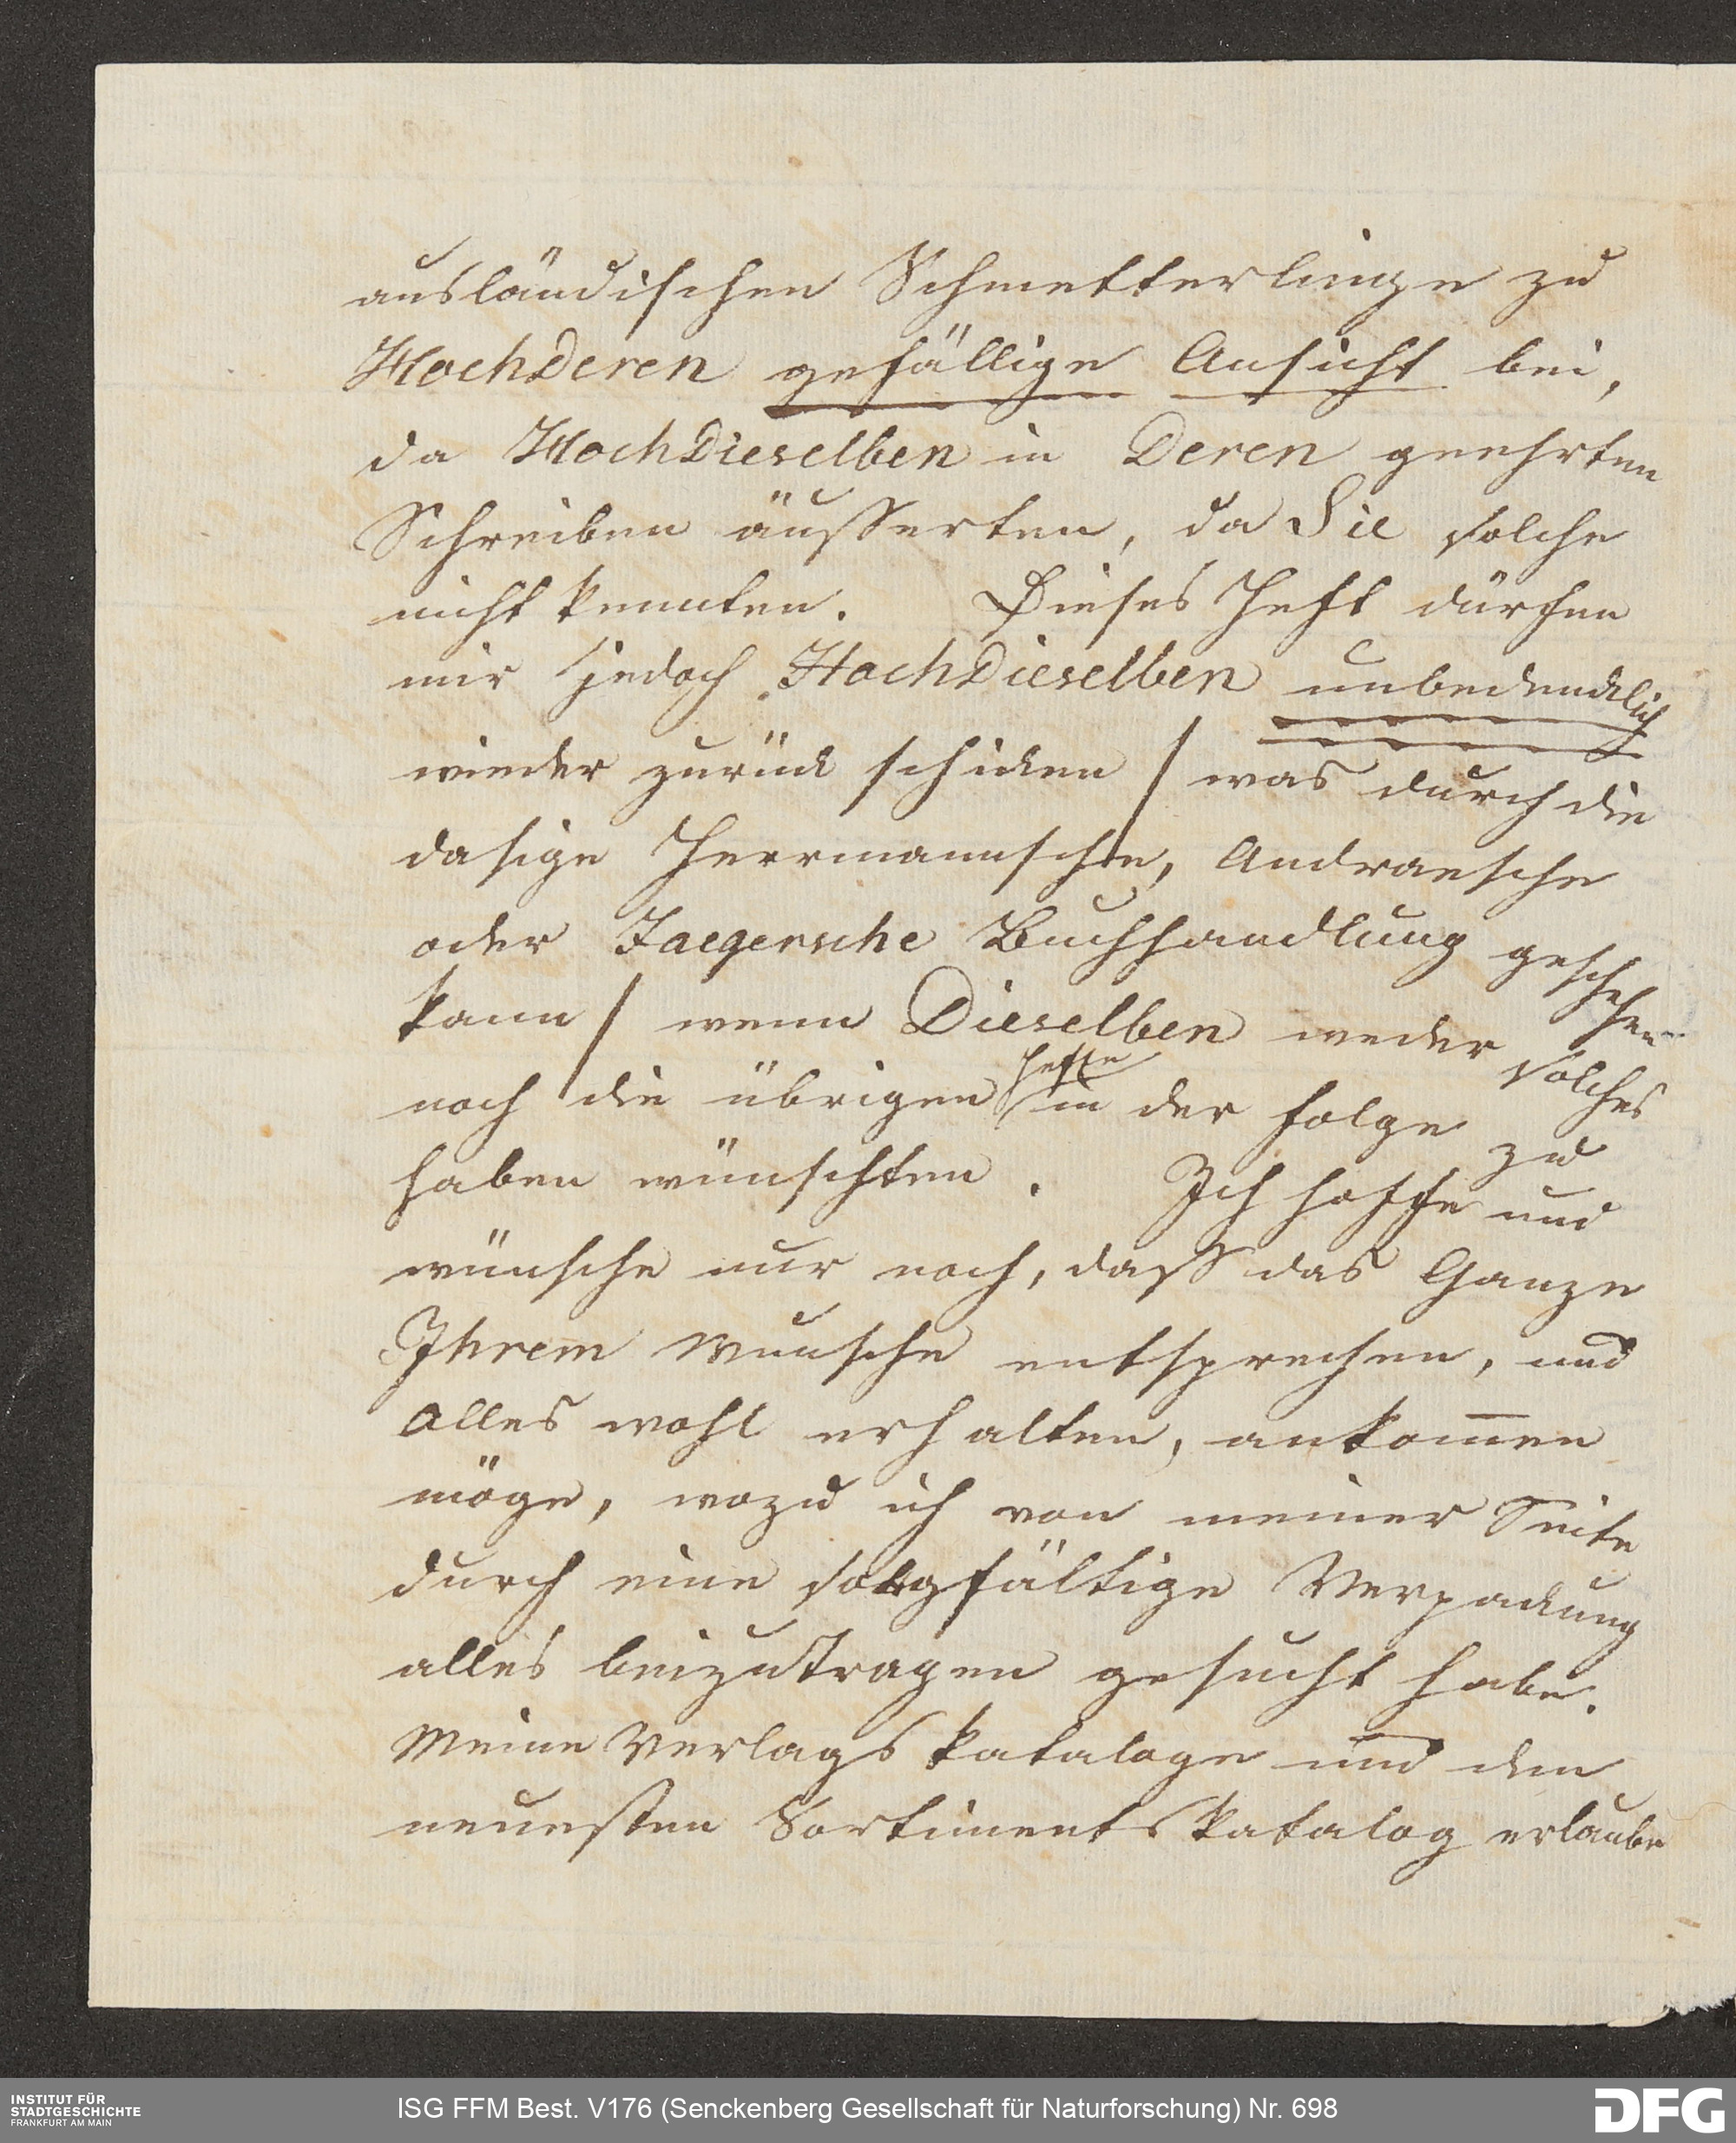 ausländischen Schmetterlinge zu
HochDeren gefällige Ansicht bei,
da HochDieselben in Deren geehrten
Schreiben äußerten, da Sie solche
nicht kennten. Dieses Heft dürfen
mir jedoch HochDieselben unbedencklich
wieder zurück schicken / was durch die
dasige Herrmannsche, Andraesche
oder Jaegersche Buchhandlung geschehen
kann / wenn Dieselben weder solches
noch die übrigen Hefte in der Folge zu
haben wünschten. Ich hoffe und
wünsche nur noch, daß das Ganze
Ihrem Wunsche entsprechen, und
Alles wohl erhalten, ankom̅en
möge, wozu ich von meiner Seite
durch eine sorgfältige Verpackung
alles beizutragen gesucht habe.
Meine Verlags kataloge und den
neuesten Sortiments katalog erlaube
INSTITUT FÜR
STADTGESCHICHTE
FRANKFURT AM MAIN
ISG FFM Best. V176 (Senckenberg Gesellschaft für Naturforschung) Nr. 698
DFG